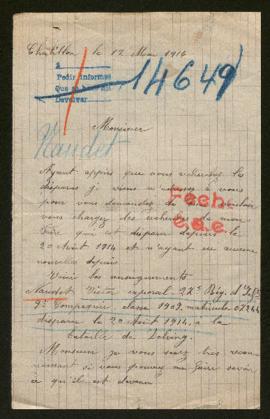 Châtillon le 12 Mai 1916
Pedir informes
Devolver
14649
Monsieur
Naudet
Ayant appris que vous recherchez les
disparus je viens m'adresser à vous
pour vous demander de
vous charger des recherches de mon
frère qui est disparu depuis le
20 Août 1914 et n'ayant eu aucune
nouvelles depuis
Voici les renseignements
Naudet Victor caporal
9e Compagnie classe 1909, matricule
disparu le 20 Août 1914, à la
bataille de
Monsieur je vous serez bien recon-
naissant si vous pouvez me faire savoir
à qu'il est devenu